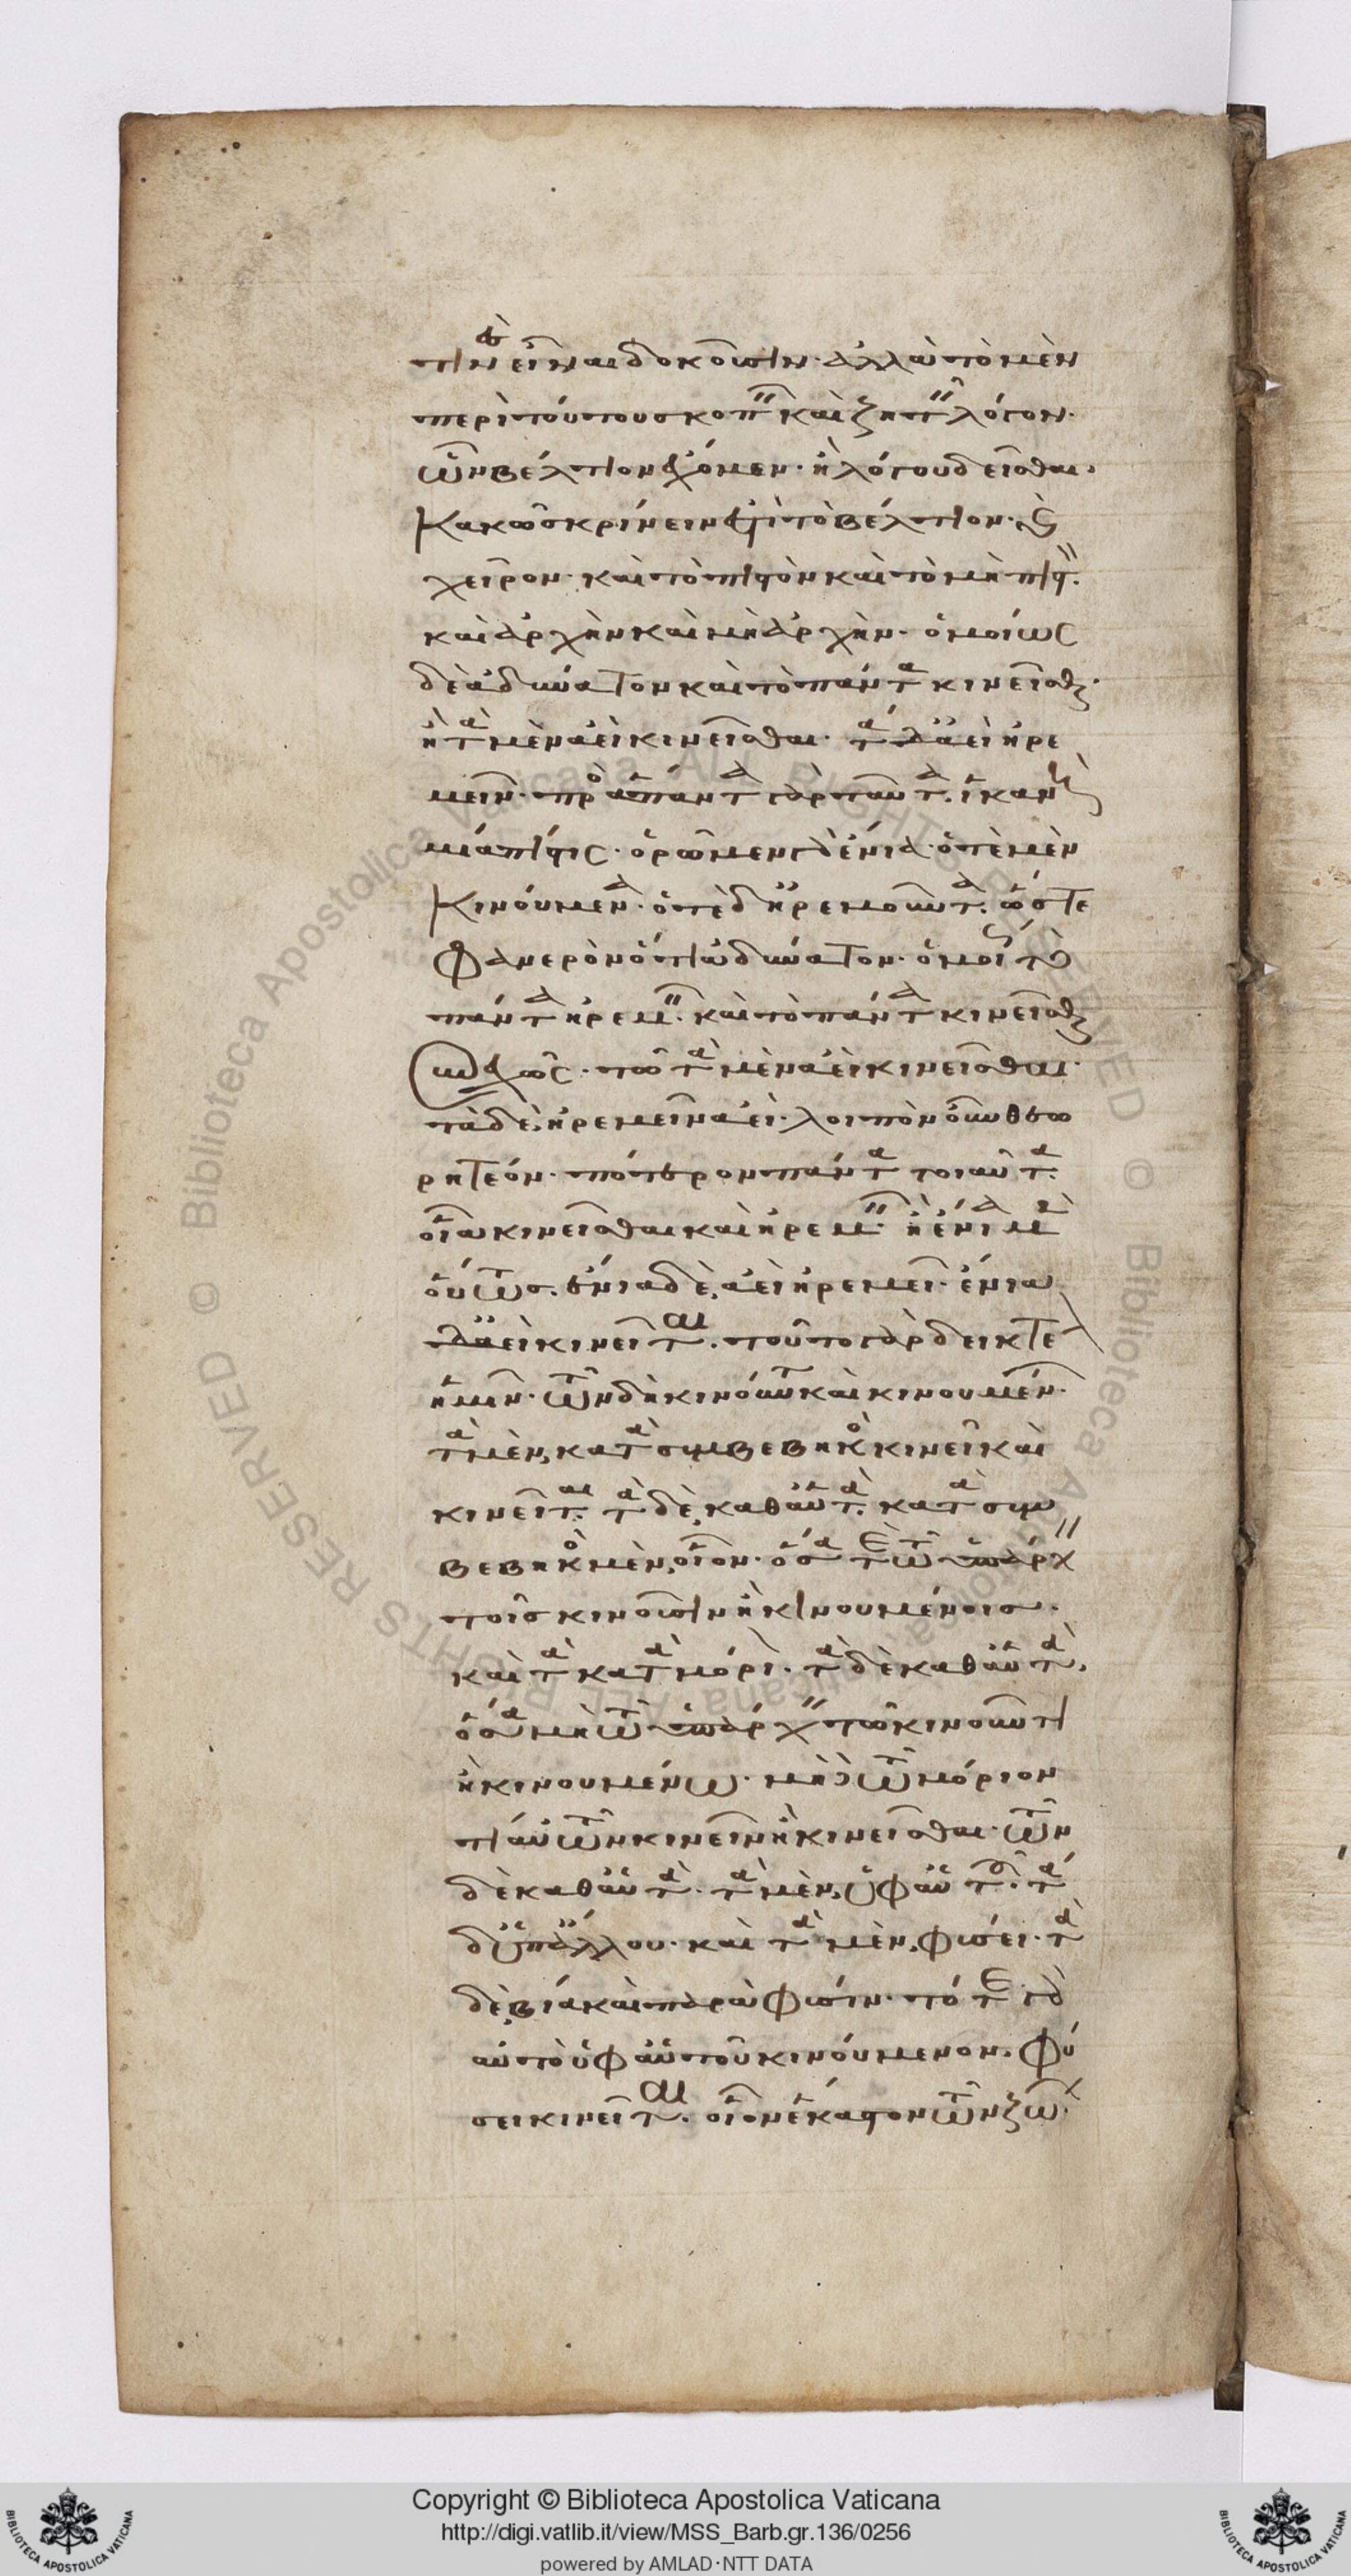 τιν εἶναι δοκοῦσιν· ἀλλὰ τὸ μὲν
περὶ τούτου σκοπεῖν καὶ ζητεῖν λόγον·
ὧν βέλτιον ἔχομεν· ἢ λόγου δεῖσθαι·
κακῶς κρίνειν ἐστὶ τὸ βέλτιον· καὶ
χεῖρον· καὶ τὸ πιστὸν καὶ τὸ μὴ πιστόν·
καὶ ἀρχὴν καὶ μὴ ἀρχήν· ὁμοίως
δὲ ἀδύνατον καὶ τὸ πάντα κινεῖσθαι·
ἢ τὰ μὲν ἀεὶ κινεῖσθαι· τὰ δ' ἀεὶ ἠρε
μεῖν· πρὸς ἅπαντα γὰρ ταῦτα· ἱκανὴ
μία πίστις· ὁρῶμεν γὰρ ἔνια· ὁτὲ μὲν
κινούμενα· ὁτὲ δ' ἠρεμοῦντα· ὥστε
φανερὸν ὅτι ἀδύνατον· ὁμοίως τὸ
πάντα ἠρεμεῖν· καὶ τὸ πάντα κινεῖσθαι
συνεχῶς· τῶ τὰ μὲν ἀεὶ κινεῖσθαι·
τὰ δὲ, ἠρεμεῖν ἀεί· λοιπὸν οὖν θεω
ρητέον· πότερον πάντα τοιαῦτα·
οἷα κινεῖσθαι καὶ ἠρεμεῖν· ἢ ἔνια μὲν
οὕτως· ἔνια δὲ, ἀεὶ ἠρεμεῖ· ἔνια
δ' ἀεὶ κινεῖται· τοῦτο γὰρ δεικτέον
ἡμῖν· τῶν δὴ κινούντων καὶ κινουμένων·
τὰ μὲν, κατὰ συμβεβηκὸς κινεῖ καὶ
κινεῖται· τὰ δὲ, καθ' αὑτά· κατὰ συμ
βεβηκὸς μὲν, οἷον· ὅσα τε τῶ ὑπάρχειν
τοῖς κινοῦσιν ἢ κινουμένοις·
καὶ τὰ κατὰ μόριον· τὰ δὲ καθ' αὑτά,
ὅσα μὴ τῶ ὑπάρχειν τῶ κινοῦντι
ἢ κινουμένω· μηδὲ τῶ μόριον
τι αὐτῶν κινεῖν ἢ κινεῖσθαι· τῶν
δὲ καθ' αὑτὰ· τὰ μὲν, ὑφ' αὑτοῦ· τὰ
δ' ὑπ' ἄλλου· καὶ τὰ μὲν, φύσει· τὰ
δὲ, βία καὶ παρὰ φύσιν· τό τε γὰρ
αὐτὸ ὑφ' αὑτοῦ κινούμενον, φύ
σει κινεῖται· οἷον ἕκαστον τῶν ζώων
Copyright © Biblioteca Apostolica Vaticana
http://digi.vatlib.it/view/MSS_Barb.gr.136/0256
powered by AMLAD·NTT DATA